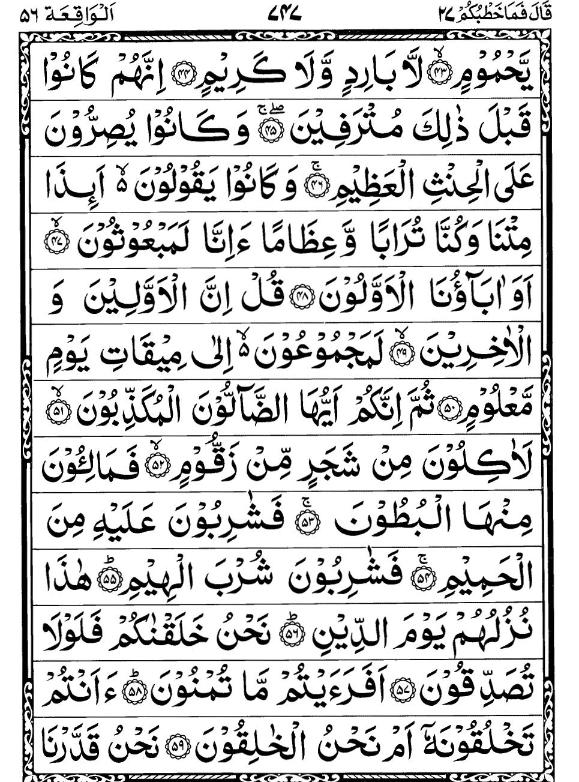 قَالَ فَمَا خَطْبُكُمْ ٢٧ ٧٤٧ اَلْوَاقِعَة ٥٦
يَّحْمُوْمٍ ﴿۴۳﴾ لَّا بَارِدٍ وَّلَا كَرِيْمٍ ﴿۴۴﴾ اِنَّهُمْ كَانُوْا
قَبْلَ ذٰلِكَ مُتْرَفِيْنَ ﴿۴۵﴾ وَكَانُوْا يُصِرُّوْنَ
عَلَى الْحِنْثِ الْعَظِيْمِ ﴿۴۶﴾ وَكَانُوْا يَقُوْلُوْنَ ۵ اَىِٕذَا
مِتْنَا وَكُنَّا تُرَابًا وَّعِظَامًا ءَاِنَّا لَمَبْعُوْثُوْنَ ﴿۴۷﴾
اَوَاٰبَآؤُنَا الْاَوَّلُوْنَ ﴿۴۸﴾ قُلْ اِنَّ الْاَوَّلِيْنَ وَ
الْاٰخِرِيْنَ ﴿۴۹﴾ لَمَجْمُوْعُوْنَ ۵ اِلٰى مِيْقَاتِ يَوْمٍ
مَّعْلُوْمٍ ﴿۵۰﴾ ثُمَّ اِنَّكُمْ اَيُّهَا الضَّآلُّوْنَ الْمُكَذِّبُوْنَ ﴿۵۱﴾
لَاٰكِلُوْنَ مِنْ شَجَرٍ مِّنْ زَقُّوْمٍ ﴿۵۲﴾ فَمَالِـُٔوْنَ
مِنْهَا الْبُطُوْنَ ﴿۵۳﴾ فَشٰرِبُوْنَ عَلَيْهِ مِنَ
الْحَمِيْمِ ﴿۵۴﴾ فَشٰرِبُوْنَ شُرْبَ الْهِيْمِ ﴿۵۵﴾ هٰذَا
نُزُلُهُمْ يَوْمَ الدِّيْنِ ﴿۵۶﴾ نَحْنُ خَلَقْنٰكُمْ فَلَوْلَا
تُصَدِّقُوْنَ ﴿۵۷﴾ اَفَرَءَيْتُمْ مَّا تُمْنُوْنَ ﴿۵۸﴾ ءَاَنْتُمْ
تَخْلُقُوْنَهٗٓ اَمْ نَحْنُ الْخٰلِقُوْنَ ﴿۵۹﴾ نَحْنُ قَدَّرْنَا